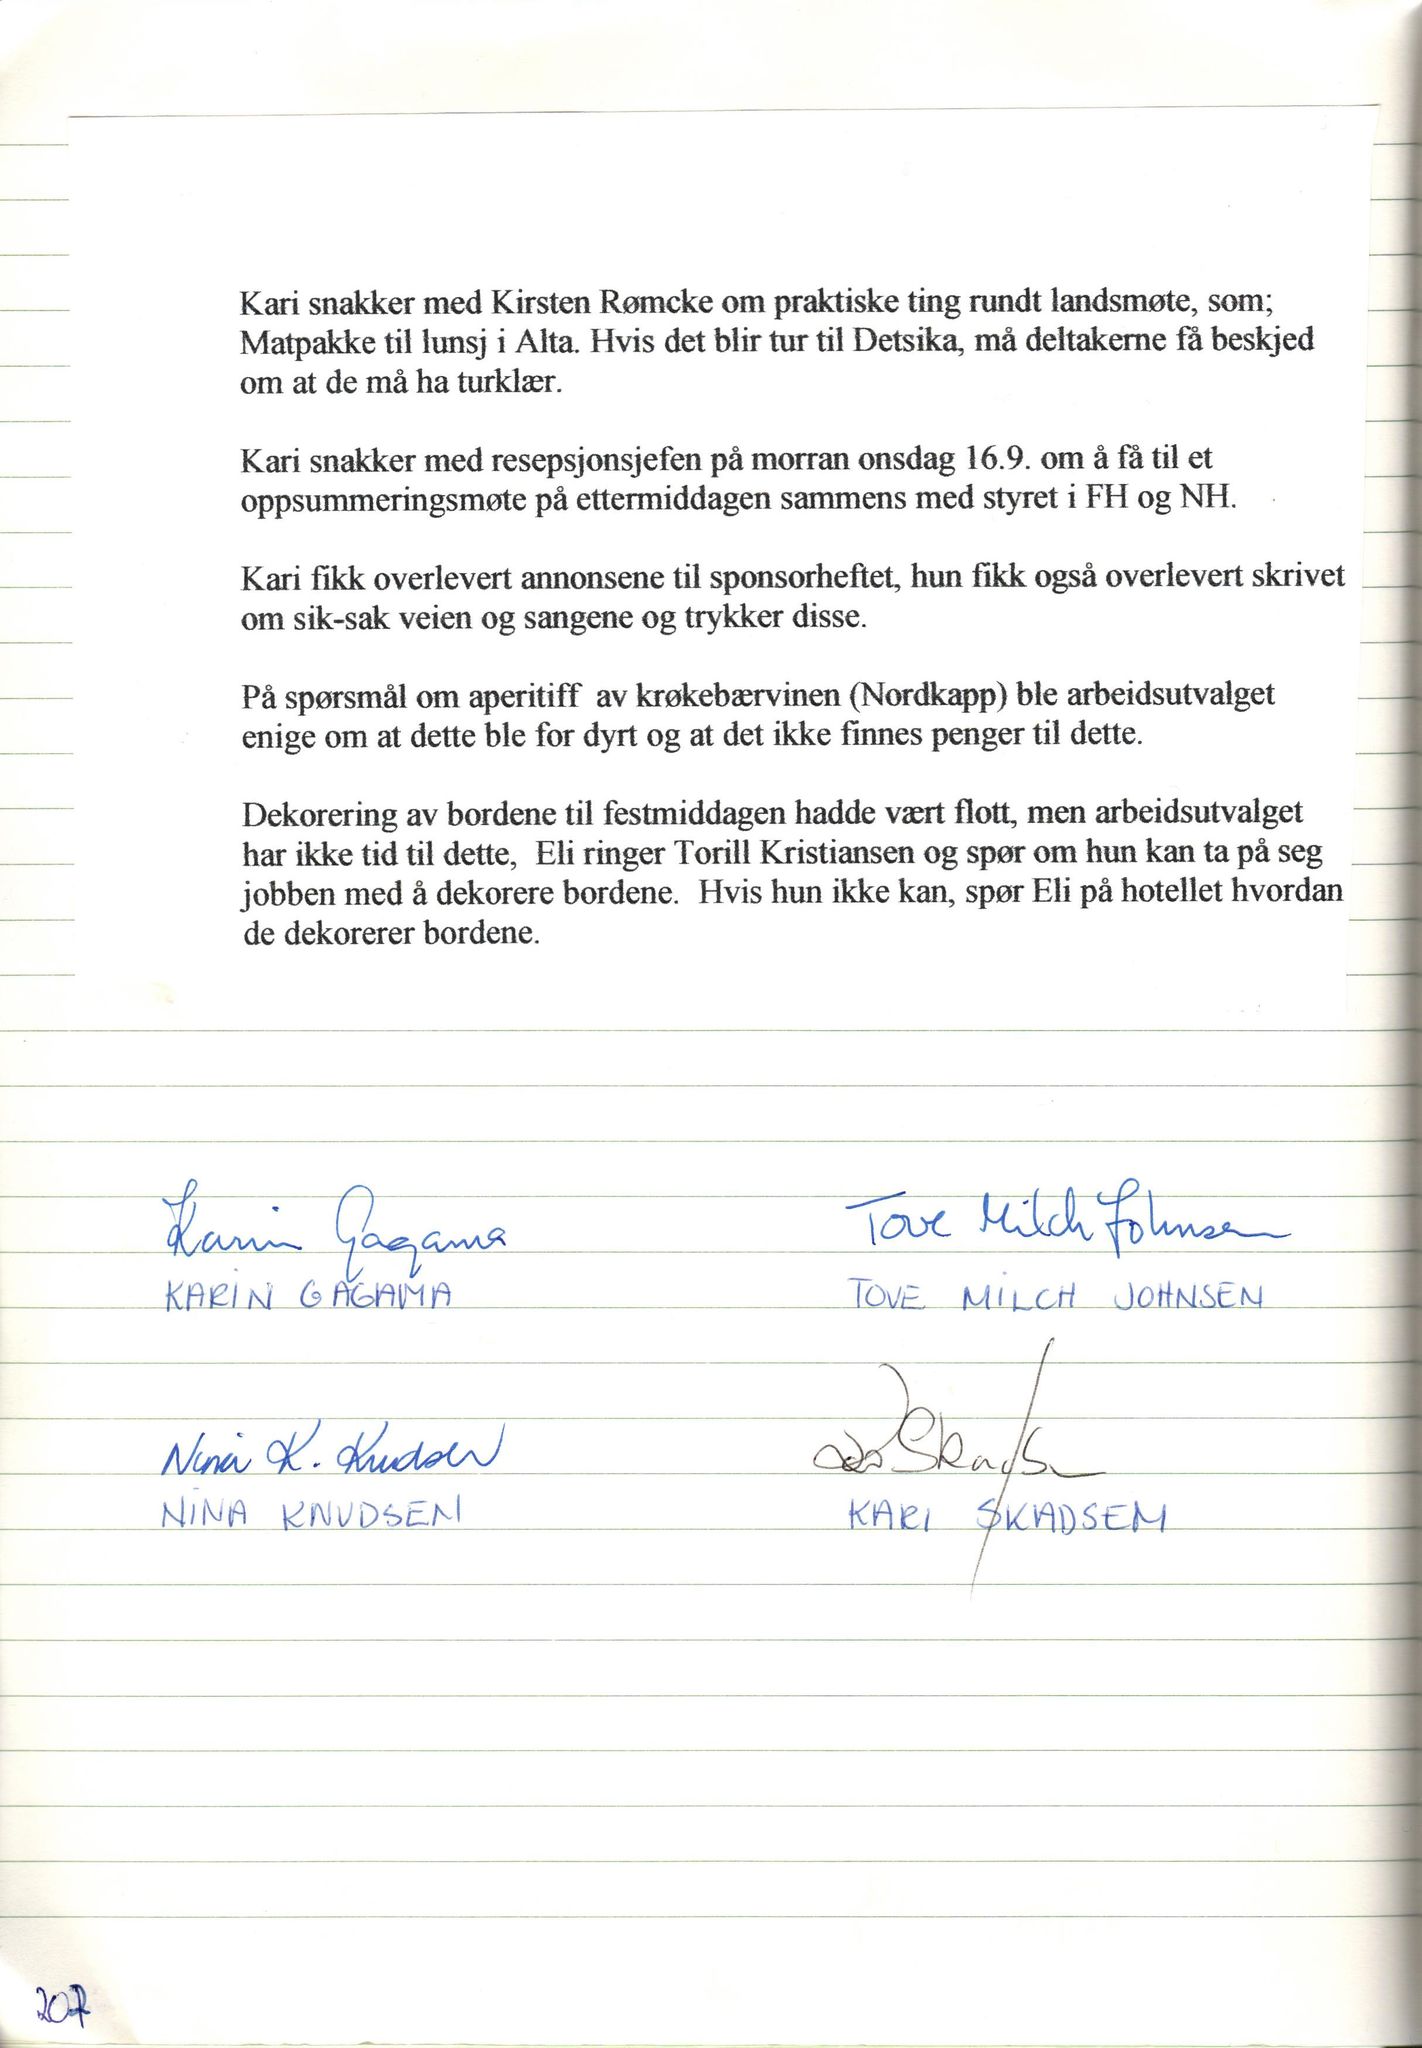 Kari snakker med Kirsten Rømcke om praktiske ting rundt landsmøte, som;
Matpakke til lunsj i Alta. Hvis det blir tur til Detsika, må deltakerne få beskjed
om at de må ha turklær.
Kari snakker med resepsjonsjefen på morran onsdag 16.9. om å få til et
oppsummeringsmøte på ettermiddagen sammens med styret i FH og NH.
Kari fikk overlevert annonsene til sponsorheftet, hun fikk også overlevert skrivet
om sik-sak veien og sangene og trykker disse.
På spørsmål om aperitiff av krøkebærvinen (Nordkapp) ble arbeidsutvalget
enige om at dette ble for dyrt og at det ikke finnes penger til dette.
Dekorering av bordene til festmiddagen hadde vært flott, men arbeidsutvalget
har ikke tid til dette, Eli ringer Torill Kristiansen og spør om hun kan ta på seg
jobben med å dekorere bordene. Hvis hun ikke kan, spør Eli på hotellet hvordan
de dekorerer bordene.
Karin Gagama Tove Milch Johnsen
KARIN GAGAMA TOVE MILCH JOHNSEN
Nina K. Knudsen Skadsem
NINA KNUDSEN KARI SKADSEM
207